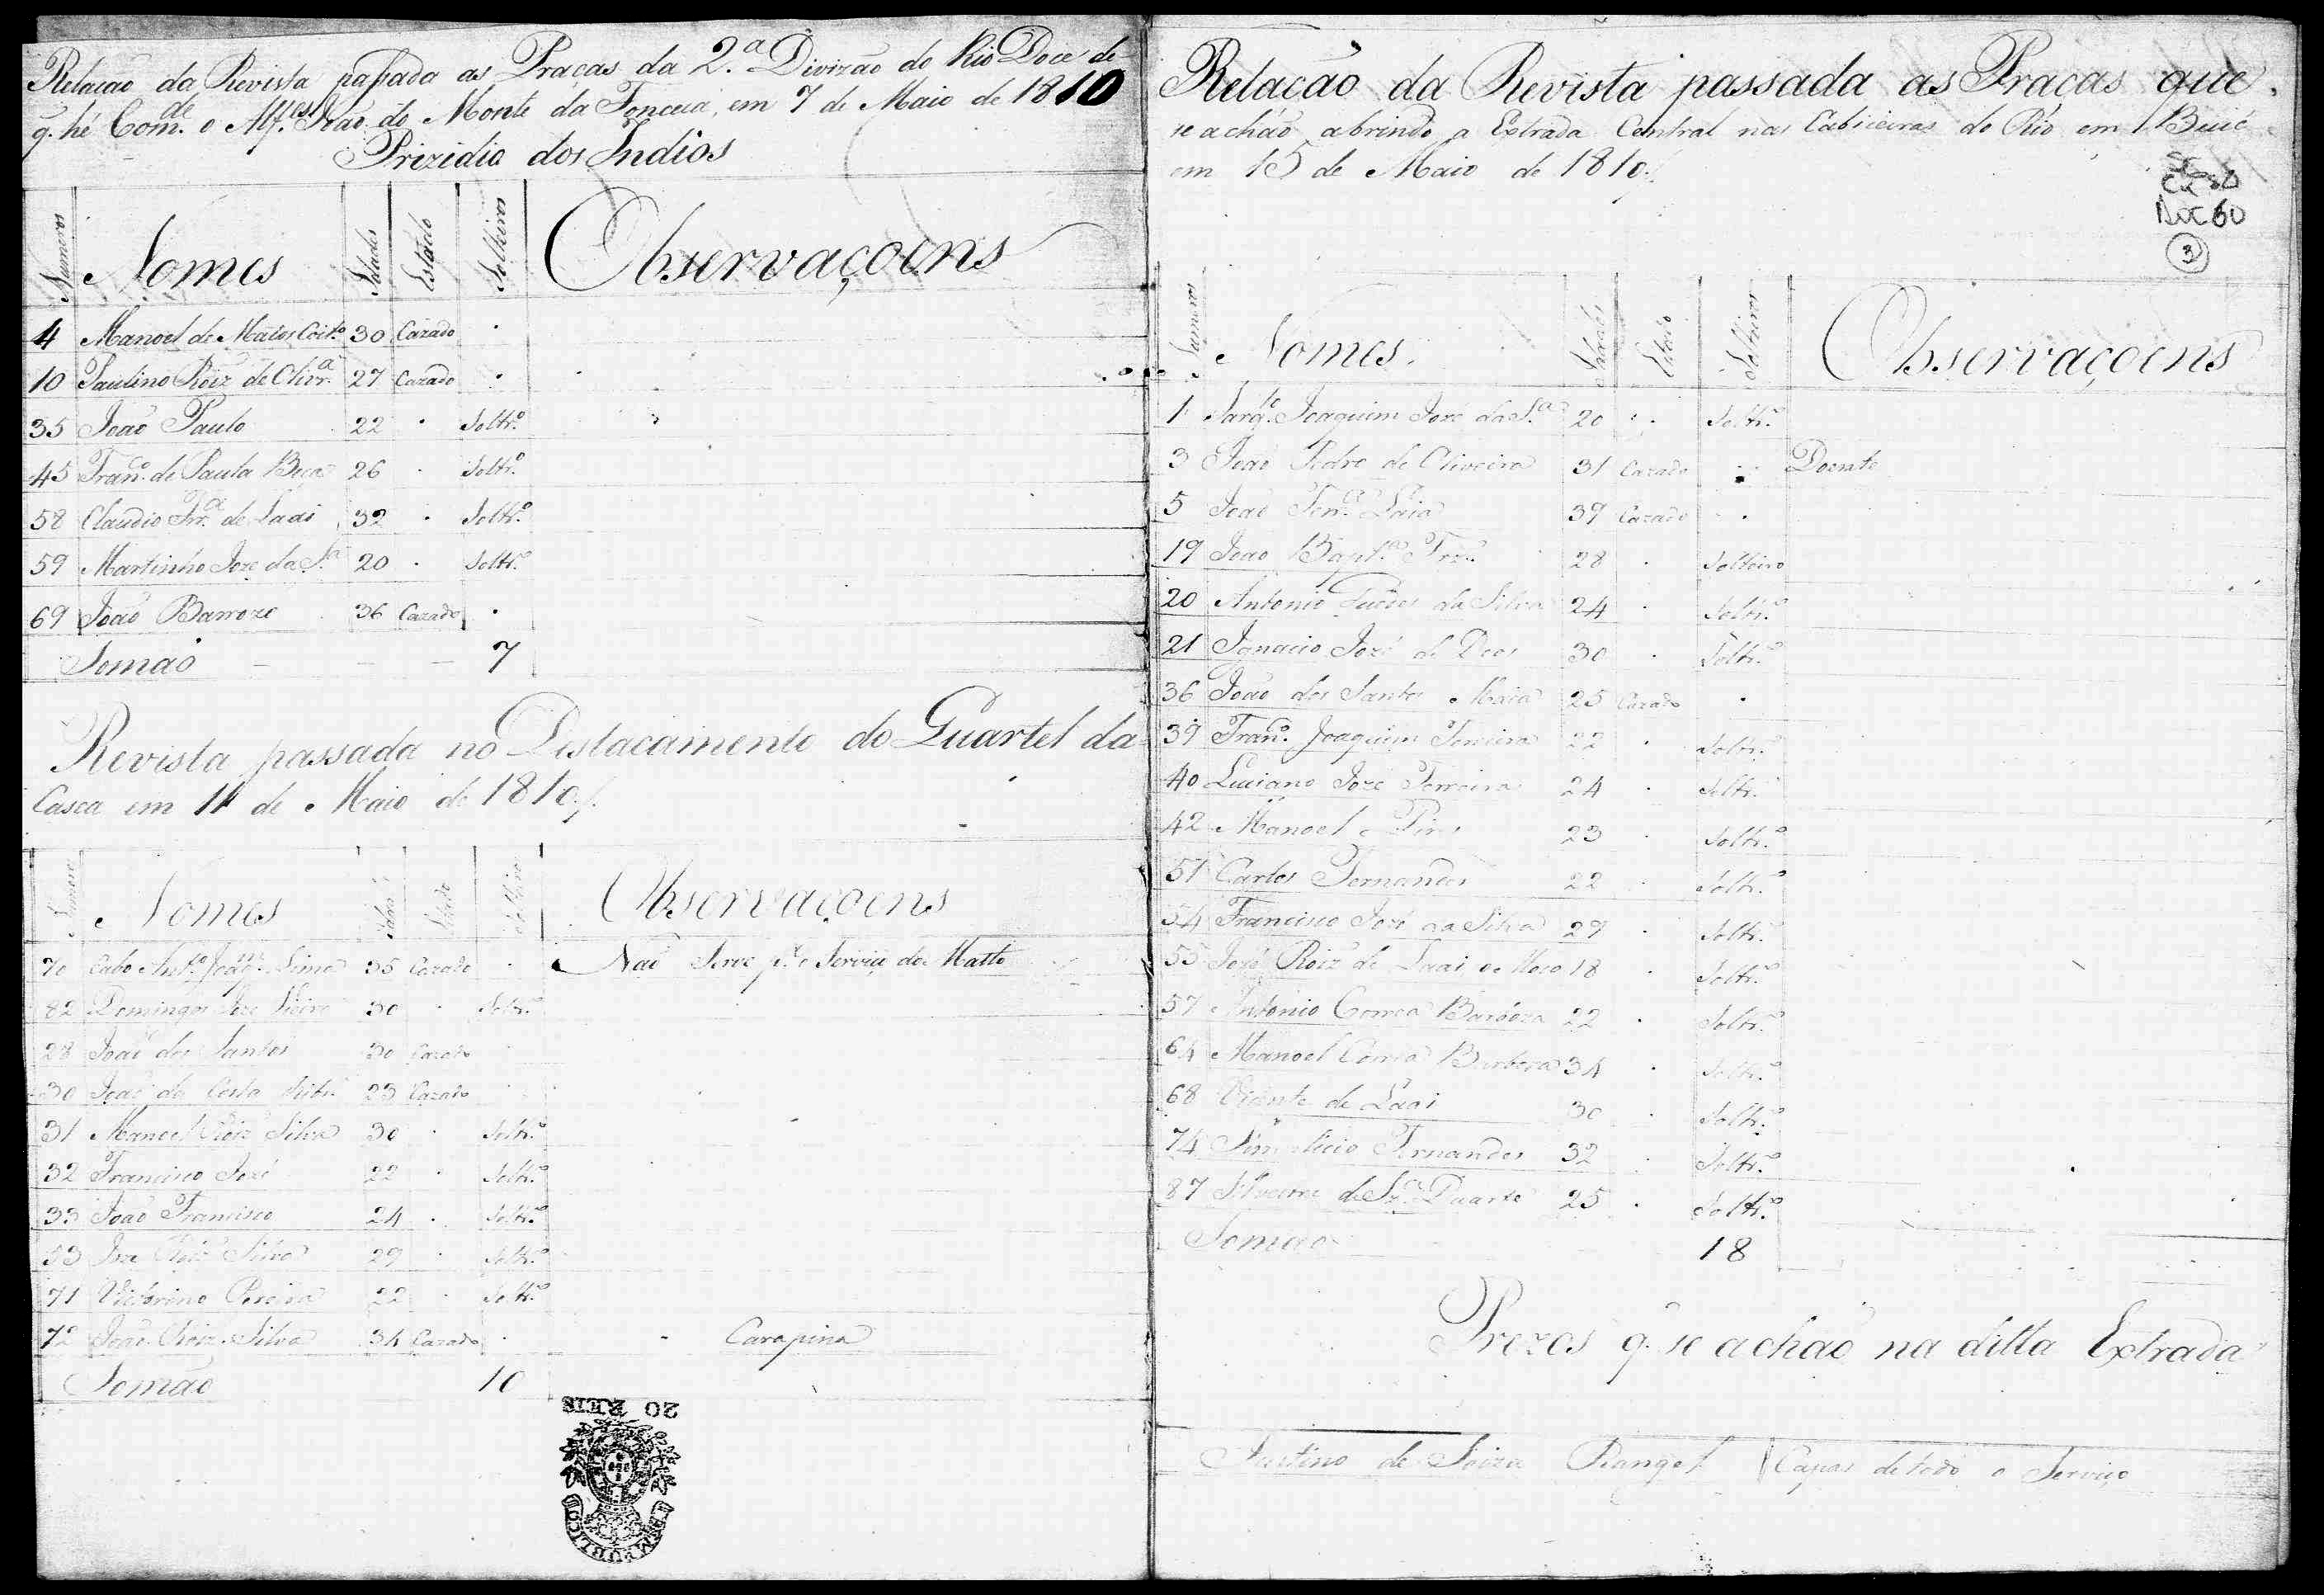 Relacaõ da Revista passada as Pracas da 2.ª Divizaõ do Rio Doce de
q. hé Com.de o Alf.es Joaõ do Monte da Fonceca, em 7 de Maio de 1810
Prizidio dos Indios
Numeros Nomes Idades Estado Solteiros Observaçoens
4 Manoel de Matos Coit.o 30 Cazado
10 Paulino Roiz de Olivr.a 27 Cazado
35 Joaõ Paulo 22 Soltr.o
45 Fran.co de Paula 26 Soltr.o
58 Claudio de Laai 32 Soltr.o
59 Martinho Jozé da S.a 20 Soltr.o
69 Joaõ Barroze 36 Cazado
Somaõ 7
Revista passada no Destacamento do Quartel da
Casca em 11 de Maio de 1810
Numeros Nomes Estado Solteiro Observaçoens
70 Cabo Ant.o Joaq.m 35 Cazado Naõ Serve p.a o Serviço do Matto
82 Domingos Joze 30 Soltr.o
28 Joaõ dos Santos 30 Cazado
30 Joaõ da Costa 23 Cazado
31 Manoel Roiz Silva 30 Soltr.o
32 Francisco Jozé 22 Soltr.o
33 Joaõ Francisco 24 Soltr.o
53 Silva 29 Soltr.o
71 Victorino Pereira 22 Soltr.o
72 Joaõ Roiz Silva 34 Cazado Carapina
Somaõ 10
20 REIS
Relacaõ da Revista passada as Pracas que
se achaõ abrindo a Extrada Central nas Cabiceiras do Rio em
em 15 de Maio de 1810
Doc 60
3
Numeros Nomes Idades Estado Solteiros Observaçoens
1 Sarg.to Joaquim Jozé da S.a 20 Soltr.o
3 Joaõ Pedro de Oliveira 31 Cazado Doente
5 39 Cazado
19 Joaõ Bapt.a 28 Solteiro
20 Antonio da Silva 24 Soltr.o
21 Ignacio Jozé de Deos 30 Soltr.o
36 Joaõ dos Santos Maia 25 Cazado
39 Fran.co Joaquim 22 Soltr.o
40 Luciano Jozé Ferreira 24 Soltr.o
42 Manoel Pires 23 Soltr.o
51 Carlos Fernandes 22 Soltr.o
54 Francisco Jozé da Silva 29 Soltr.o
55 Jozé Roiz de Laai o Moco 18 Soltr.o
57 Antonio Correa Barboza 22 Soltr.o
64 Manoel Correa Barboza 34 Soltr.o
68 Vicente de Laai 30 Soltr.o
74 Simplicio Fernandes 32 Soltr.o
87 Duarte 25 Soltr.o
Somaõ 18
Prezos q. se achaõ na ditta Extrada
Justino de Soiza Rangel Capas de todo o Serviço